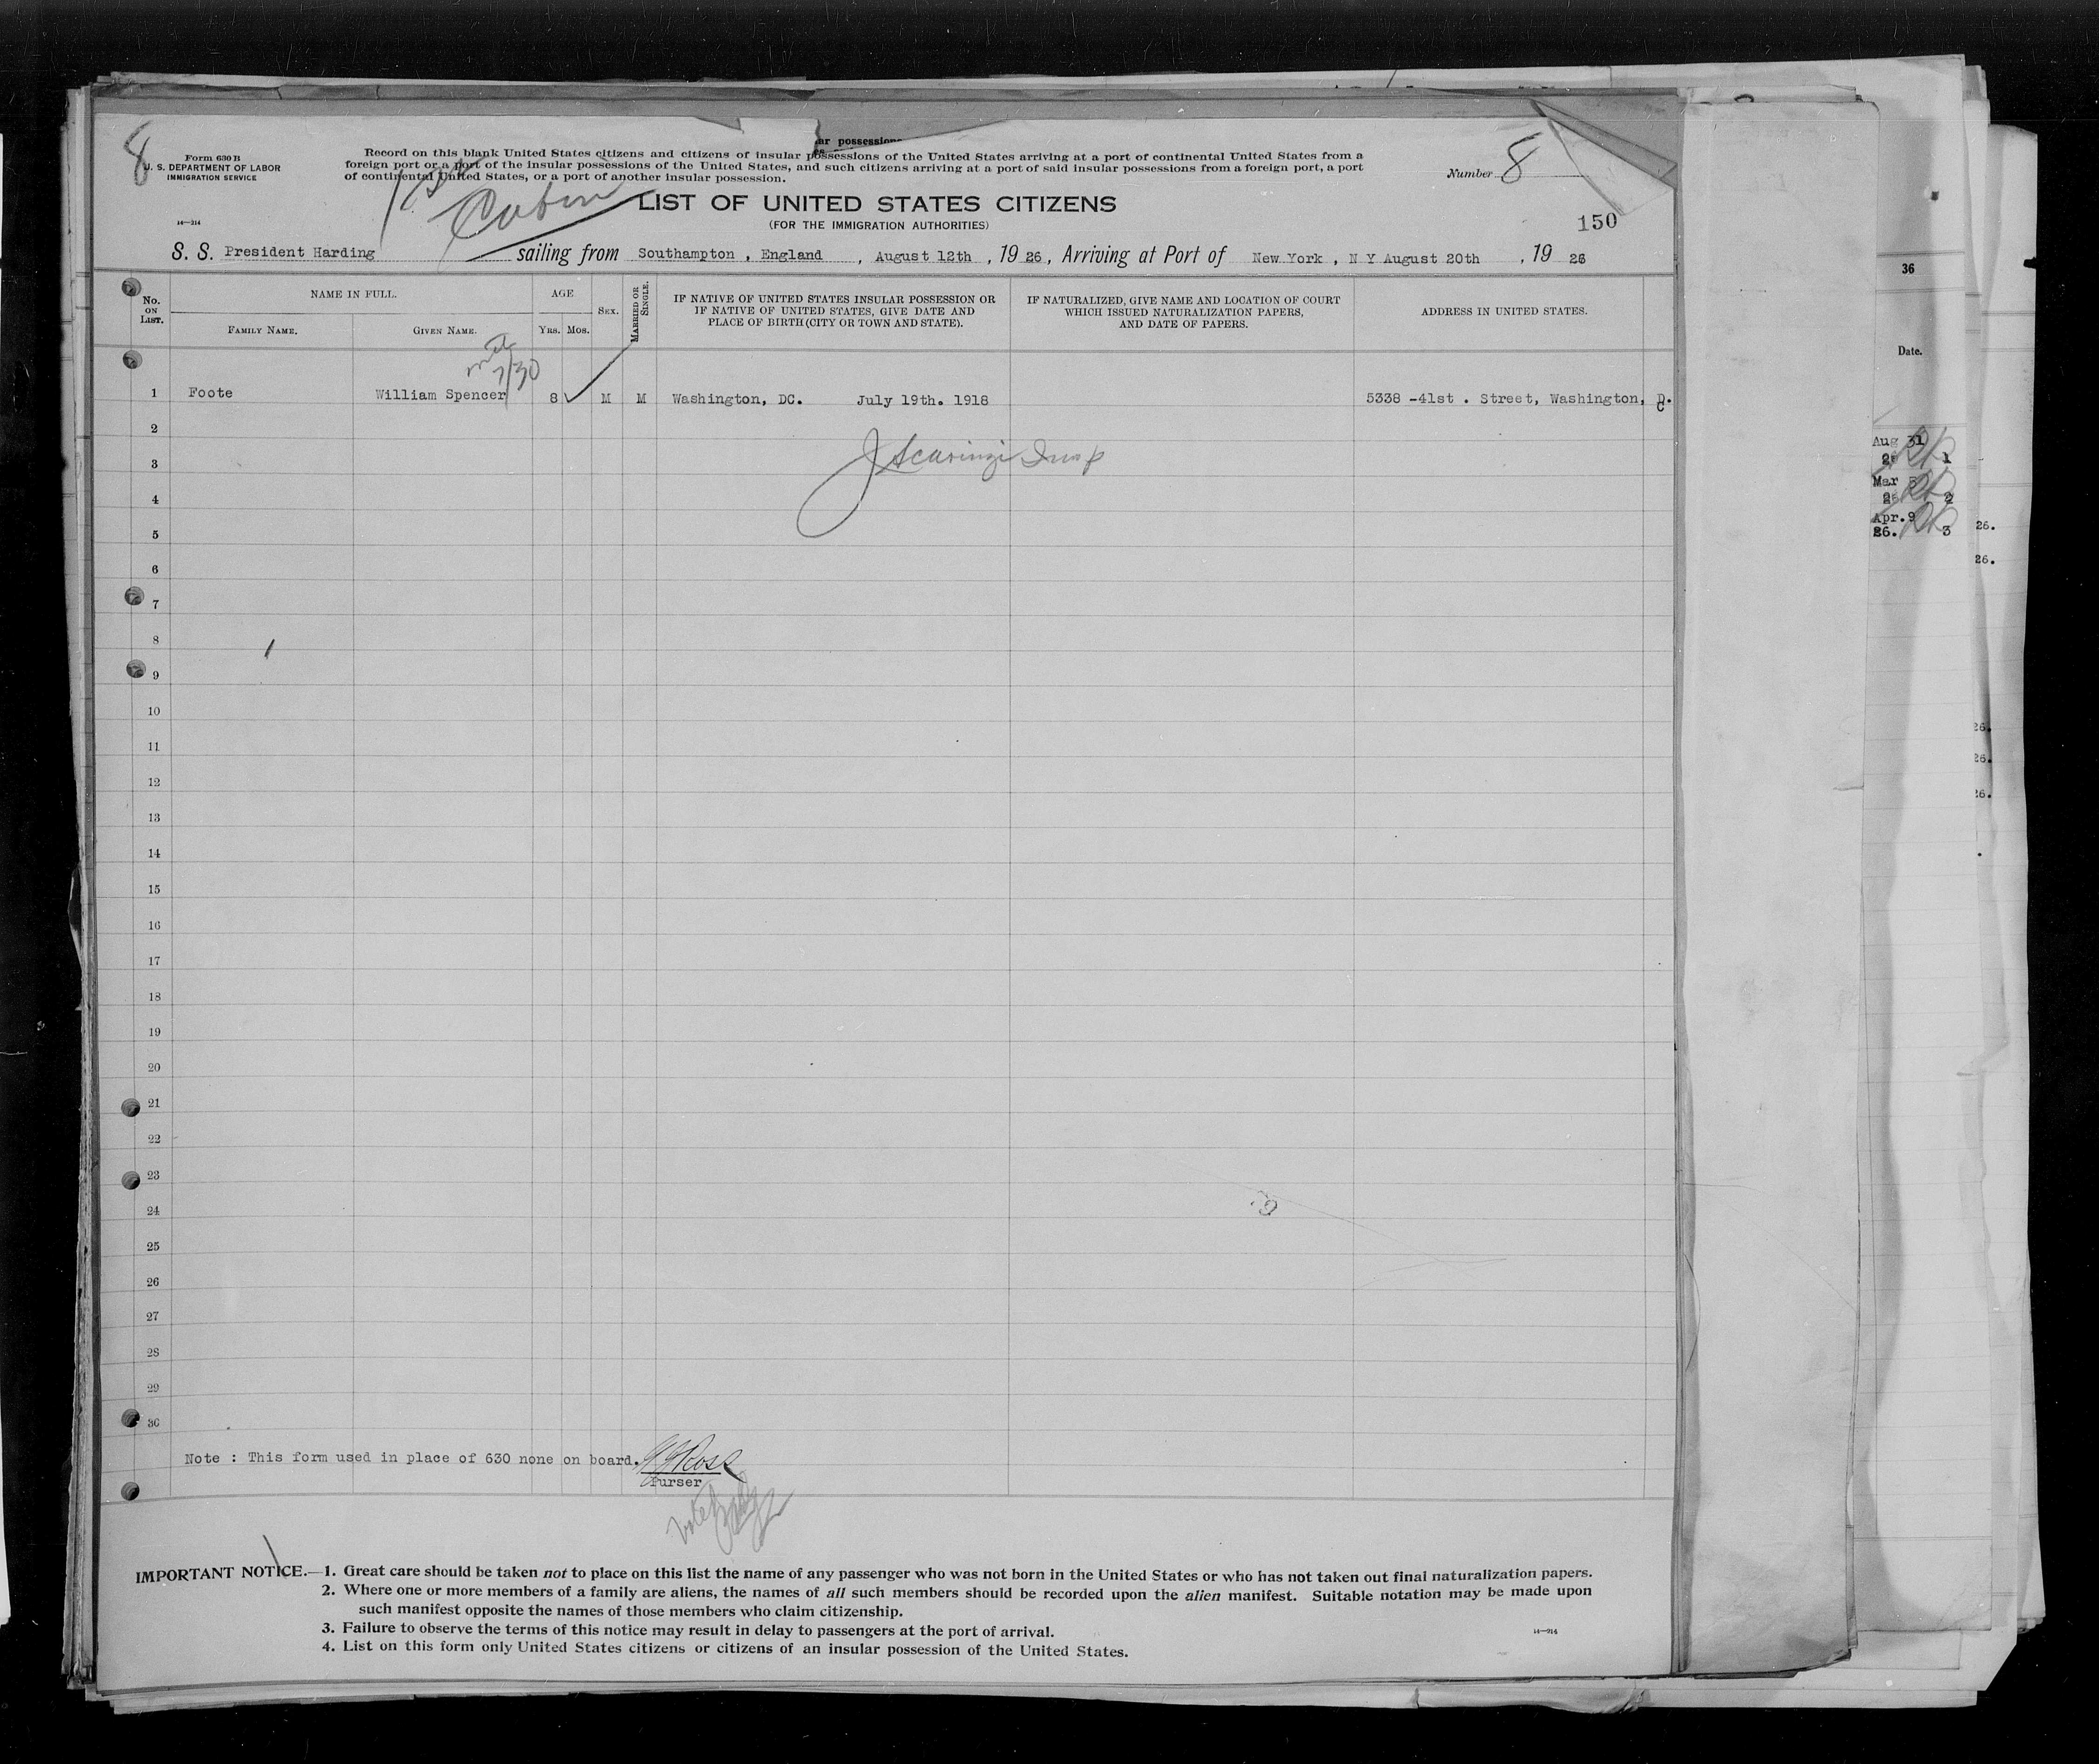 8
Form 630 B
U. S. DEPARTMENT OF LABOR
IMMIGRATION SERVICE
14—214
ar possessions
Record on this blank United States citizens and citizens of insular possessions of the United States arriving at a port of continental United States from a
foreign port or a port of the insular possessions of the United States, and such citizens arriving at a port of said insular possessions from a foreign port, a port
of continental United States, or a port of another insular possession.
Number 8
1st
Cabin
LIST OF UNITED STATES CITIZENS
(FOR THE IMMIGRATION AUTHORITIES)
150
S. S. President Harding sailing from Southampton , England , August 12th , 19 26, Arriving at Port of New York , N Y August 20th , 19 26
No. ON LIST.
NAME IN FULL.
FAMILY NAME.
GIVEN NAME.
AGE
YRS. MOS.
SEX.
MARRIED OR SINGLE.
IF NATIVE OF UNITED STATES INSULAR POSSESSION OR
IF NATIVE OF UNITED STATES, GIVE DATE AND
PLACE OF BIRTH (CITY OR TOWN AND STATE).
IF NATURALIZED, GIVE NAME AND LOCATION OF COURT
WHICH ISSUED NATURALIZATION PAPERS,
AND DATE OF PAPERS.
ADDRESS IN UNITED STATES.
7/30
1 Foote William Spencer 8 M M Washington, DC. July 19th. 1918 5338 -41st . Street, Washington, D.
C
2
J Scarinzi Insp
3
4
5
6
7
8
9
10
11
12
13
14
15
16
17
18
19
20
21
22
23
24
25
26
27
28
29
30
Note : This form used in place of 630 none on board. Ross
Purser
IMPORTANT NOTICE.—1. Great care should be taken not to place on this list the name of any passenger who was not born in the United States or who has not taken out final naturalization papers.
2. Where one or more members of a family are aliens, the names of all such members should be recorded upon the alien manifest. Suitable notation may be made upon
such manifest opposite the names of those members who claim citizenship.
3. Failure to observe the terms of this notice may result in delay to passengers at the port of arrival.
4. List on this form only United States citizens or citizens of an insular possession of the United States.
14—214
36
Date.
Aug 31
26 1
Mar
26 2
Apr.9
26. 3
26.
26.
26.
26.
26.